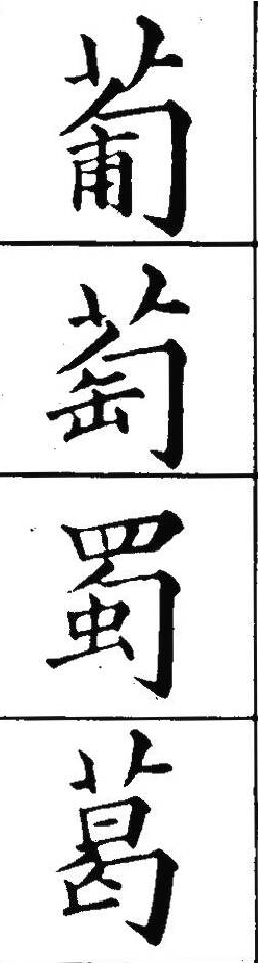 葡
萄
蜀
葛